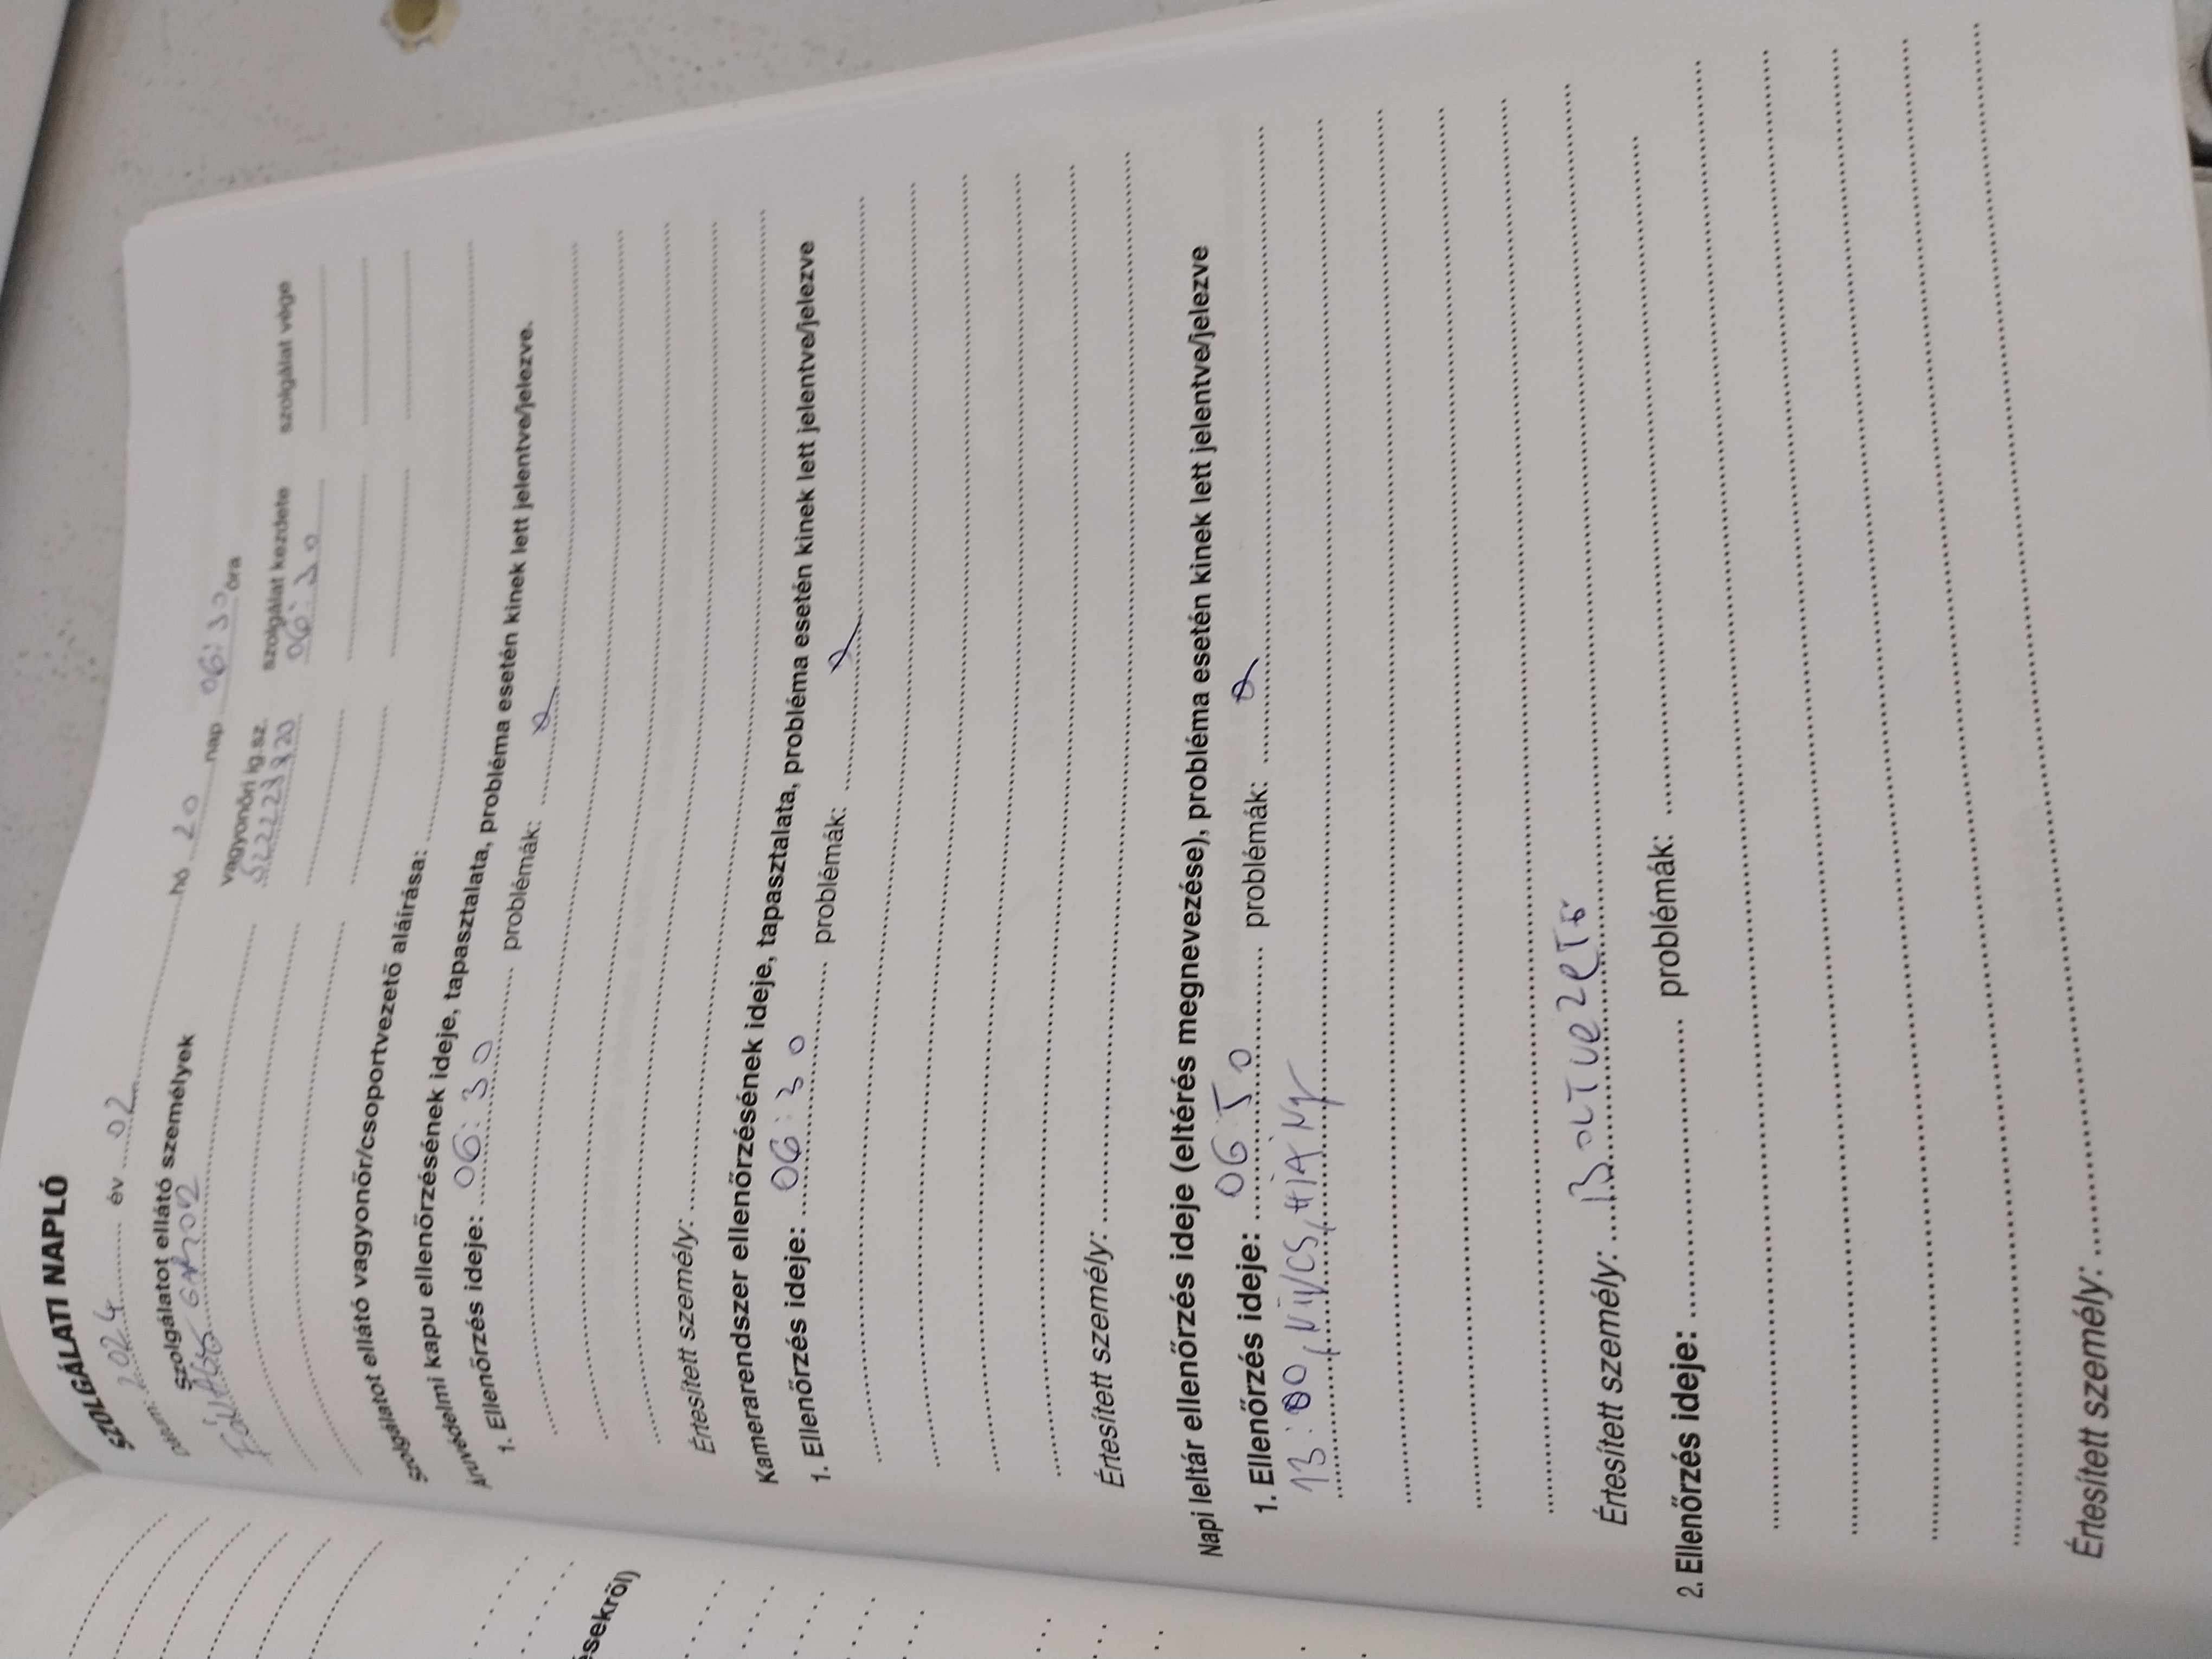 SZOLGÁLATI NAPLÓ
Dátum: 2024 év 02 hó 20 nap 06:30 óra
Szolgálatot ellátó személyek vagyonőri ig.sz. szolgálat kezdete szolgálat vége
06:30
Szolgálatot ellátó vagyonőr/csoportvezető aláírása:
Áruvédelmi kapu ellenőrzésének ideje, tapasztalata, probléma esetén kinek lett jelentve/jelezve.
1. Ellenőrzés ideje: 06:30 problémák:
Értesített személy:
Kamerarendszer ellenőrzésének ideje, tapasztalata, probléma esetén kinek lett jelentve/jelezve
1. Ellenőrzés ideje: 06:30 problémák:
Értesített személy:
Napi leltár ellenőrzés ideje (eltérés megnevezése), probléma esetén kinek lett jelentve/jelezve
1. Ellenőrzés ideje: 06:50 problémák:
13:00, NINCS HIÁNY
Értesített személy: BOLTVEZETŐ
2. Ellenőrzés ideje: problémák:
Értesített személy:
sekről)